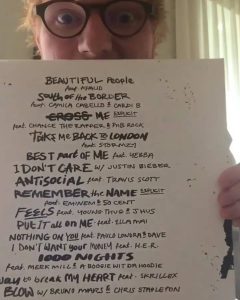 BEAUTIFUL People
feat. KHALID
South of the BORDER
feat. CAMILA CABELLO & CARDI B
CROSS ME EXPLICIT
feat. CHANCE THE RAPPER & PNB ROCK
TAKE ME BACK TO LONDON
feat. STORMZY
BEST part OF ME feat. YEBBA
I DON'T CARE w/ JUSTIN BIEBER
ANTISOCIAL feat. TRAVIS SCOTT
REMEMBER the NAME EXPLICIT
feat. EMINEM & 50 CENT
FEELS feat. YOUNG THUG & J HUS
PUT IT all ON ME feat. ELLA MAI
NOTHING ON YOU feat. PAULO LONDRA & DAVE
I DON'T WANT YOUR MONEY feat. H.E.R.
1000 NIGHTS
feat. MEEK MILL & A BOOGIE WIT DA HOODIE
way to break MY HEART feat. SKRILLEX
BLOW w/ BRUNO MARS & CHRIS STAPLETON